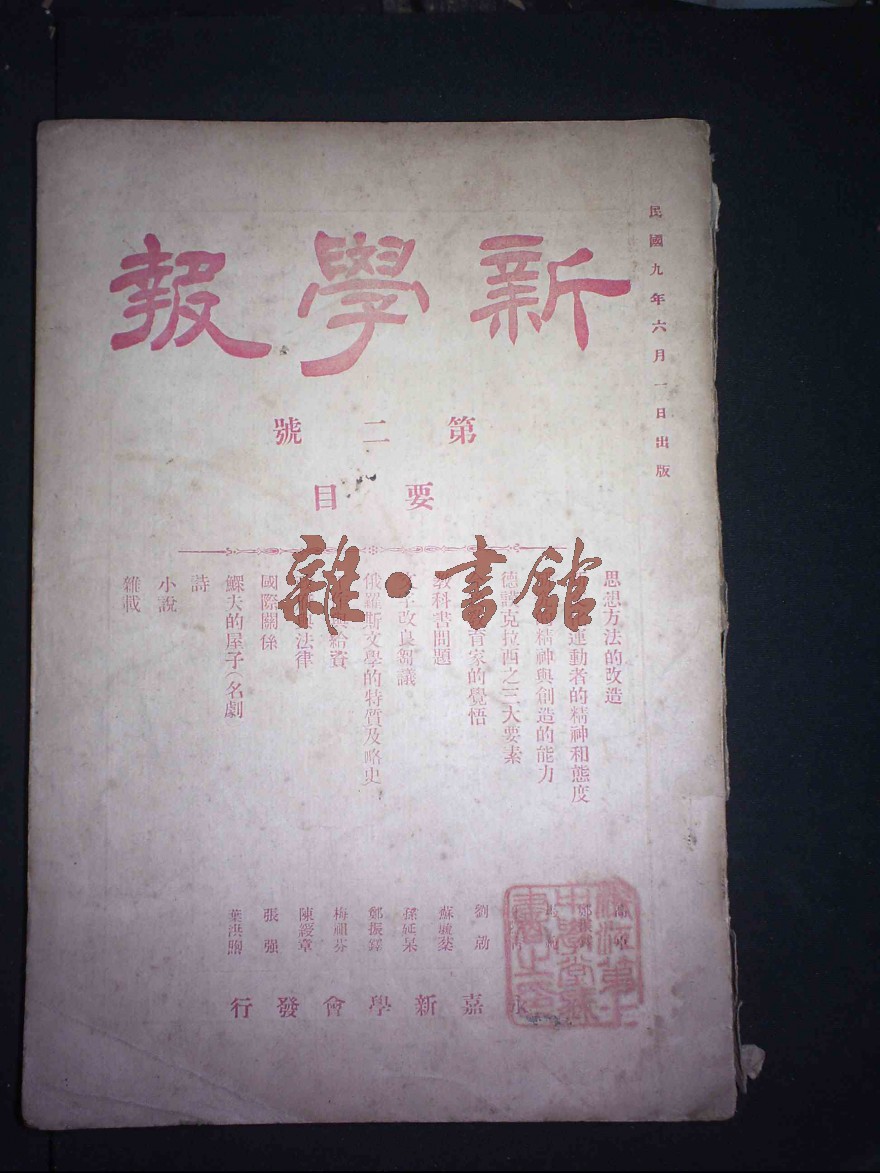 民國九年六月一日出版
新學報
第二號
要目
思想方法的改造
運動者的精神和態度
精神與創造的能力
德謨克拉西之三大要素
育家的覺悟
教科書問題
改良芻議
俄羅斯文學的特質及略史
與給資
法律
國際關係
鰥夫的屋子(名劇
詩
小說
雜載
劉勍
蘇
孫延杲
鄭振鐸
梅祖芬
陳綬章
張強
葉洪煦
永嘉新學會發行
雜·書館